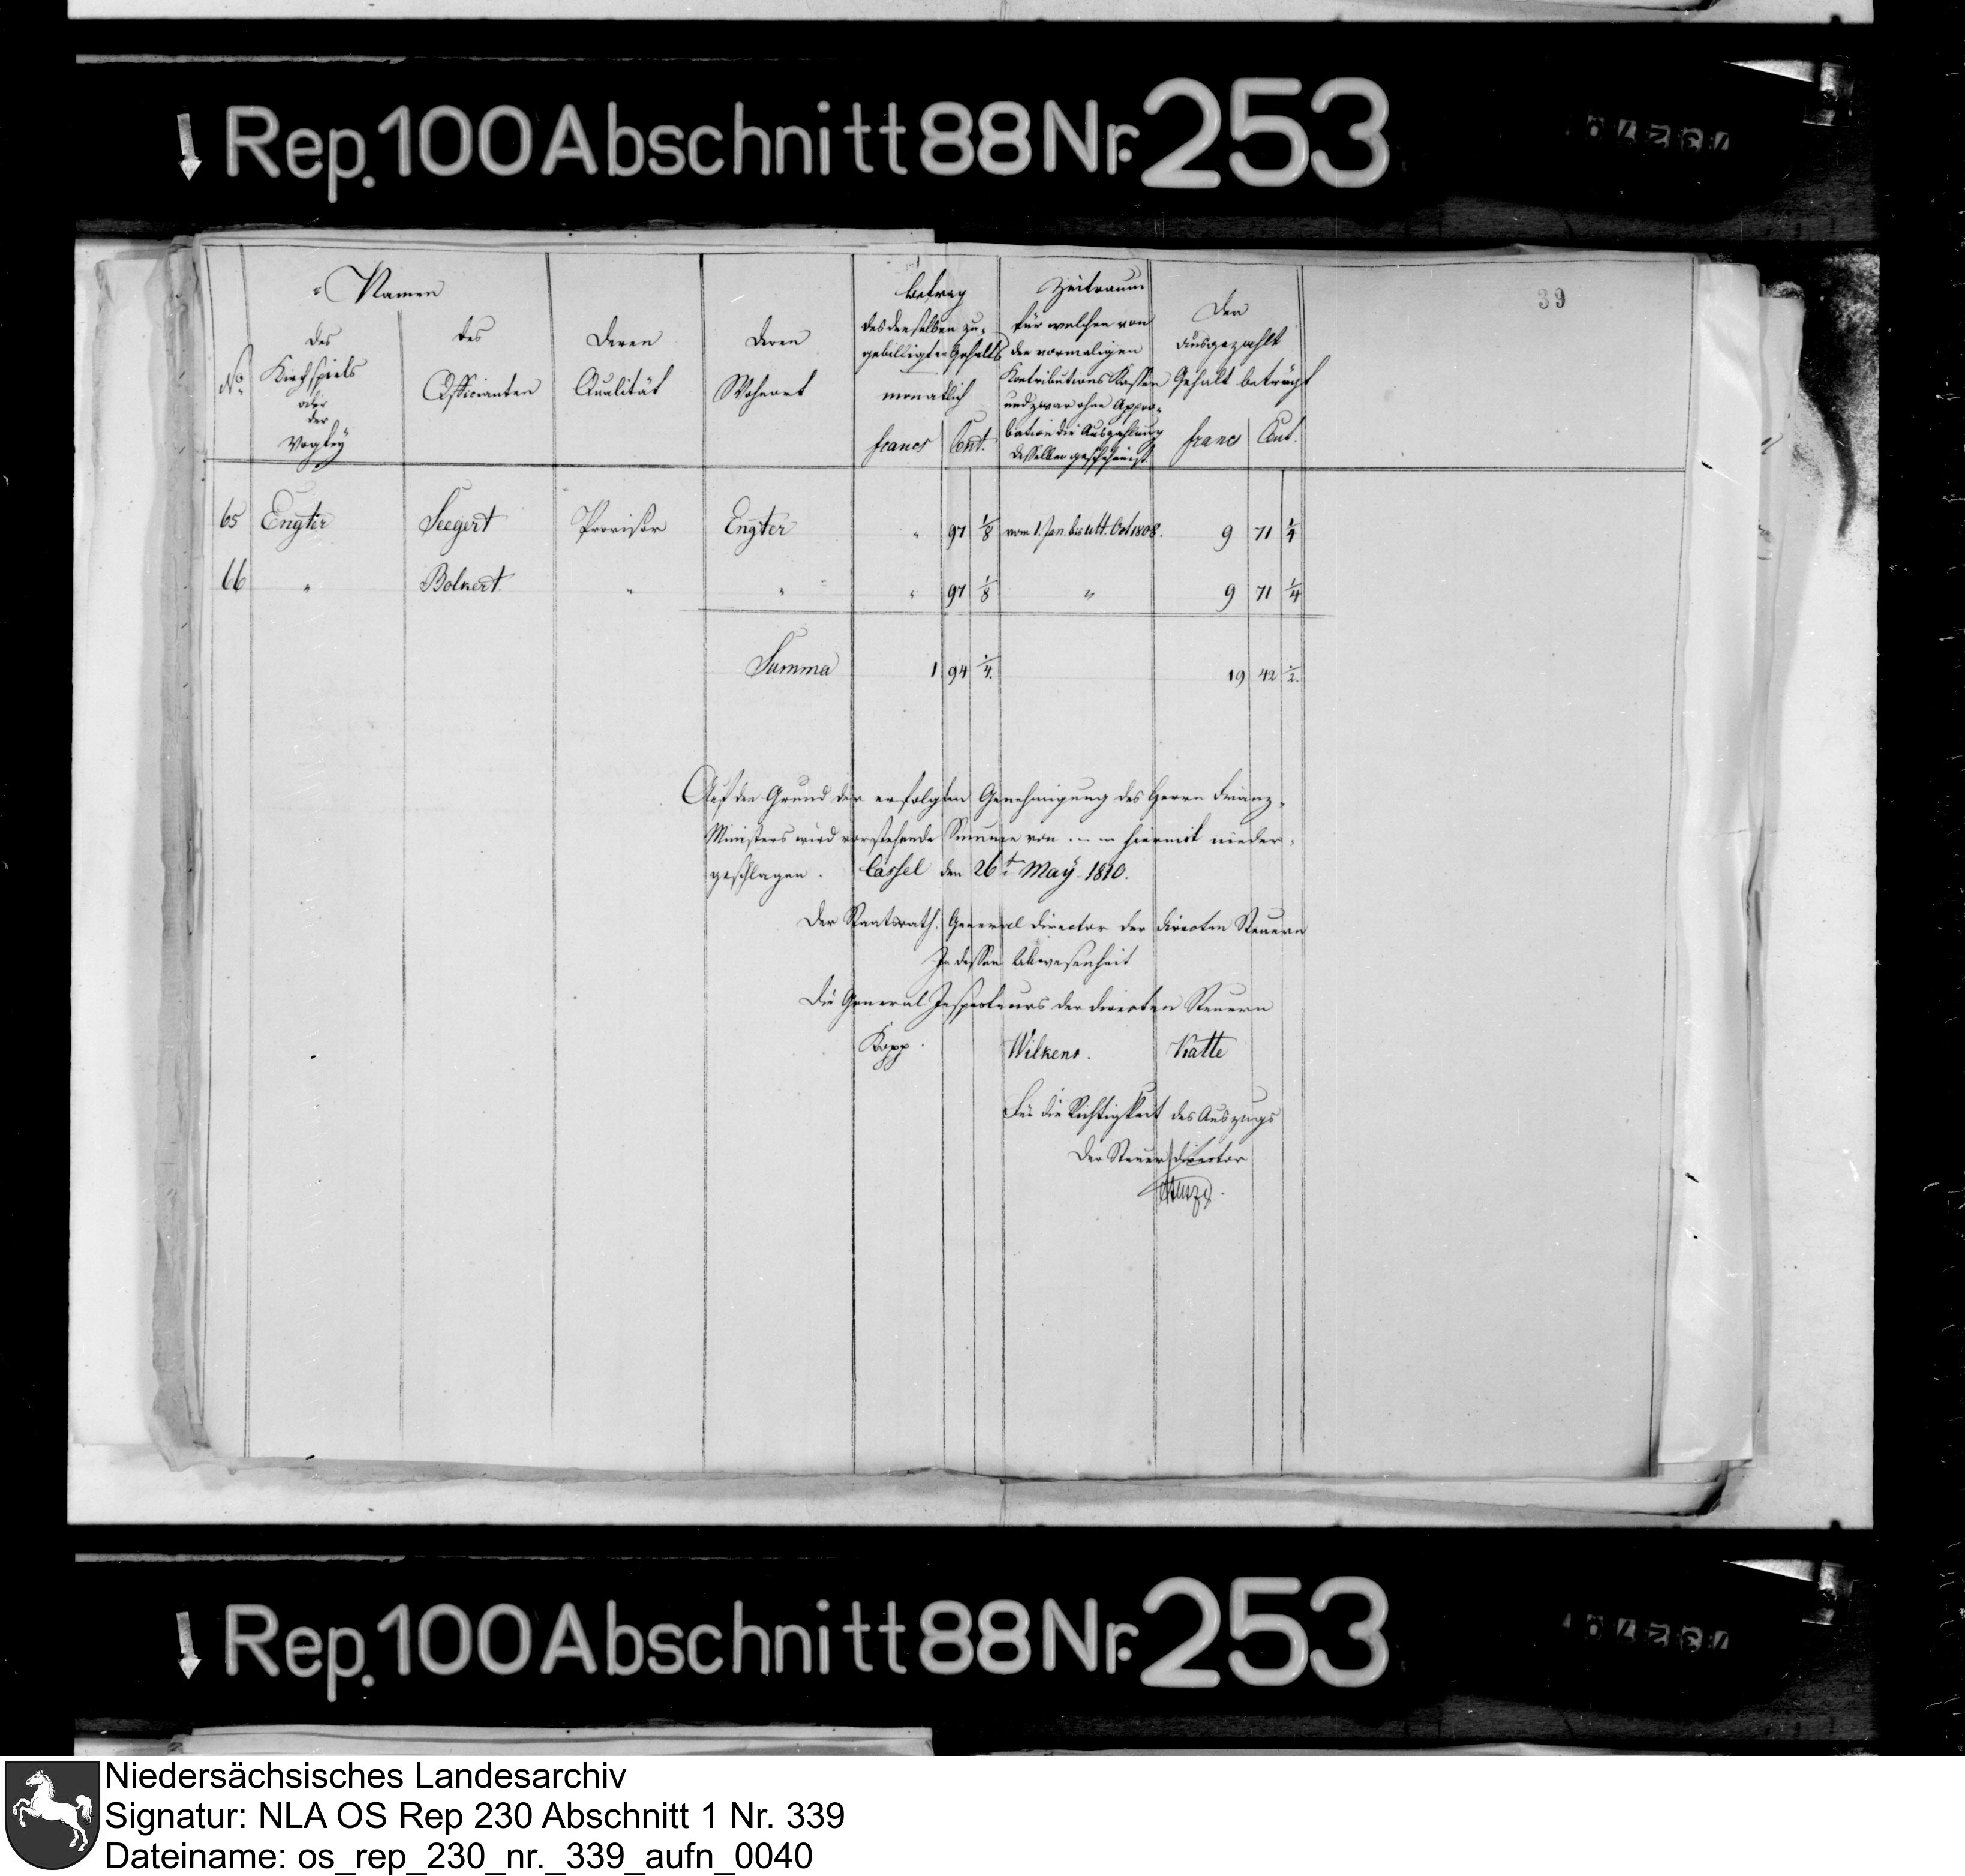 Rep. 100 Abschnitt 88 Nr. 253
39
Namen
des Kirchspiels oder der Vogtey
des Officianten
Deren Qualität
Deren Wohnort
Betrag des denselben zugebilligten Gehalts monatlich
francs Cent.
Zeitraum
für welchen von
den vormaligen
Contributions Kassen
und zwar ohne Appro-
bation die Auszahlung
desselben geschehen ist
Der
ausgezahlt
Gehalt beträgt
francs Cent.
No.
65 Engter Seegert Provisor Engter " 97 1/8 vom 1. Jan. bis ult. Oct 1808. 9 71 1/4
66 " Bolnert " " " 97 1/8 " 9 71 1/4
Summa 1 94 1/4. 19 42 1/2.
Auf den Grund der erfolgten Genehmigung des Herrn Finanz-
Ministers wird vorstehende Summe von ... hiermit nieder-
geschlagen. Cassel den 26t May. 1810.
Der Staatsrath, General Director der directen Steuern
In dessen Abwesenheit
Die General Inspecteurs der directen Steuern
Kopp. Wilkens. Katte
Für die Richtigkeit des Auszugs
Der Steuer Director
Rep. 100 Abschnitt 88 Nr. 253
Niedersächsisches Landesarchiv
Signatur: NLA OS Rep 230 Abschnitt 1 Nr. 339
Dateiname: os_rep_230_nr._339_aufn_0040